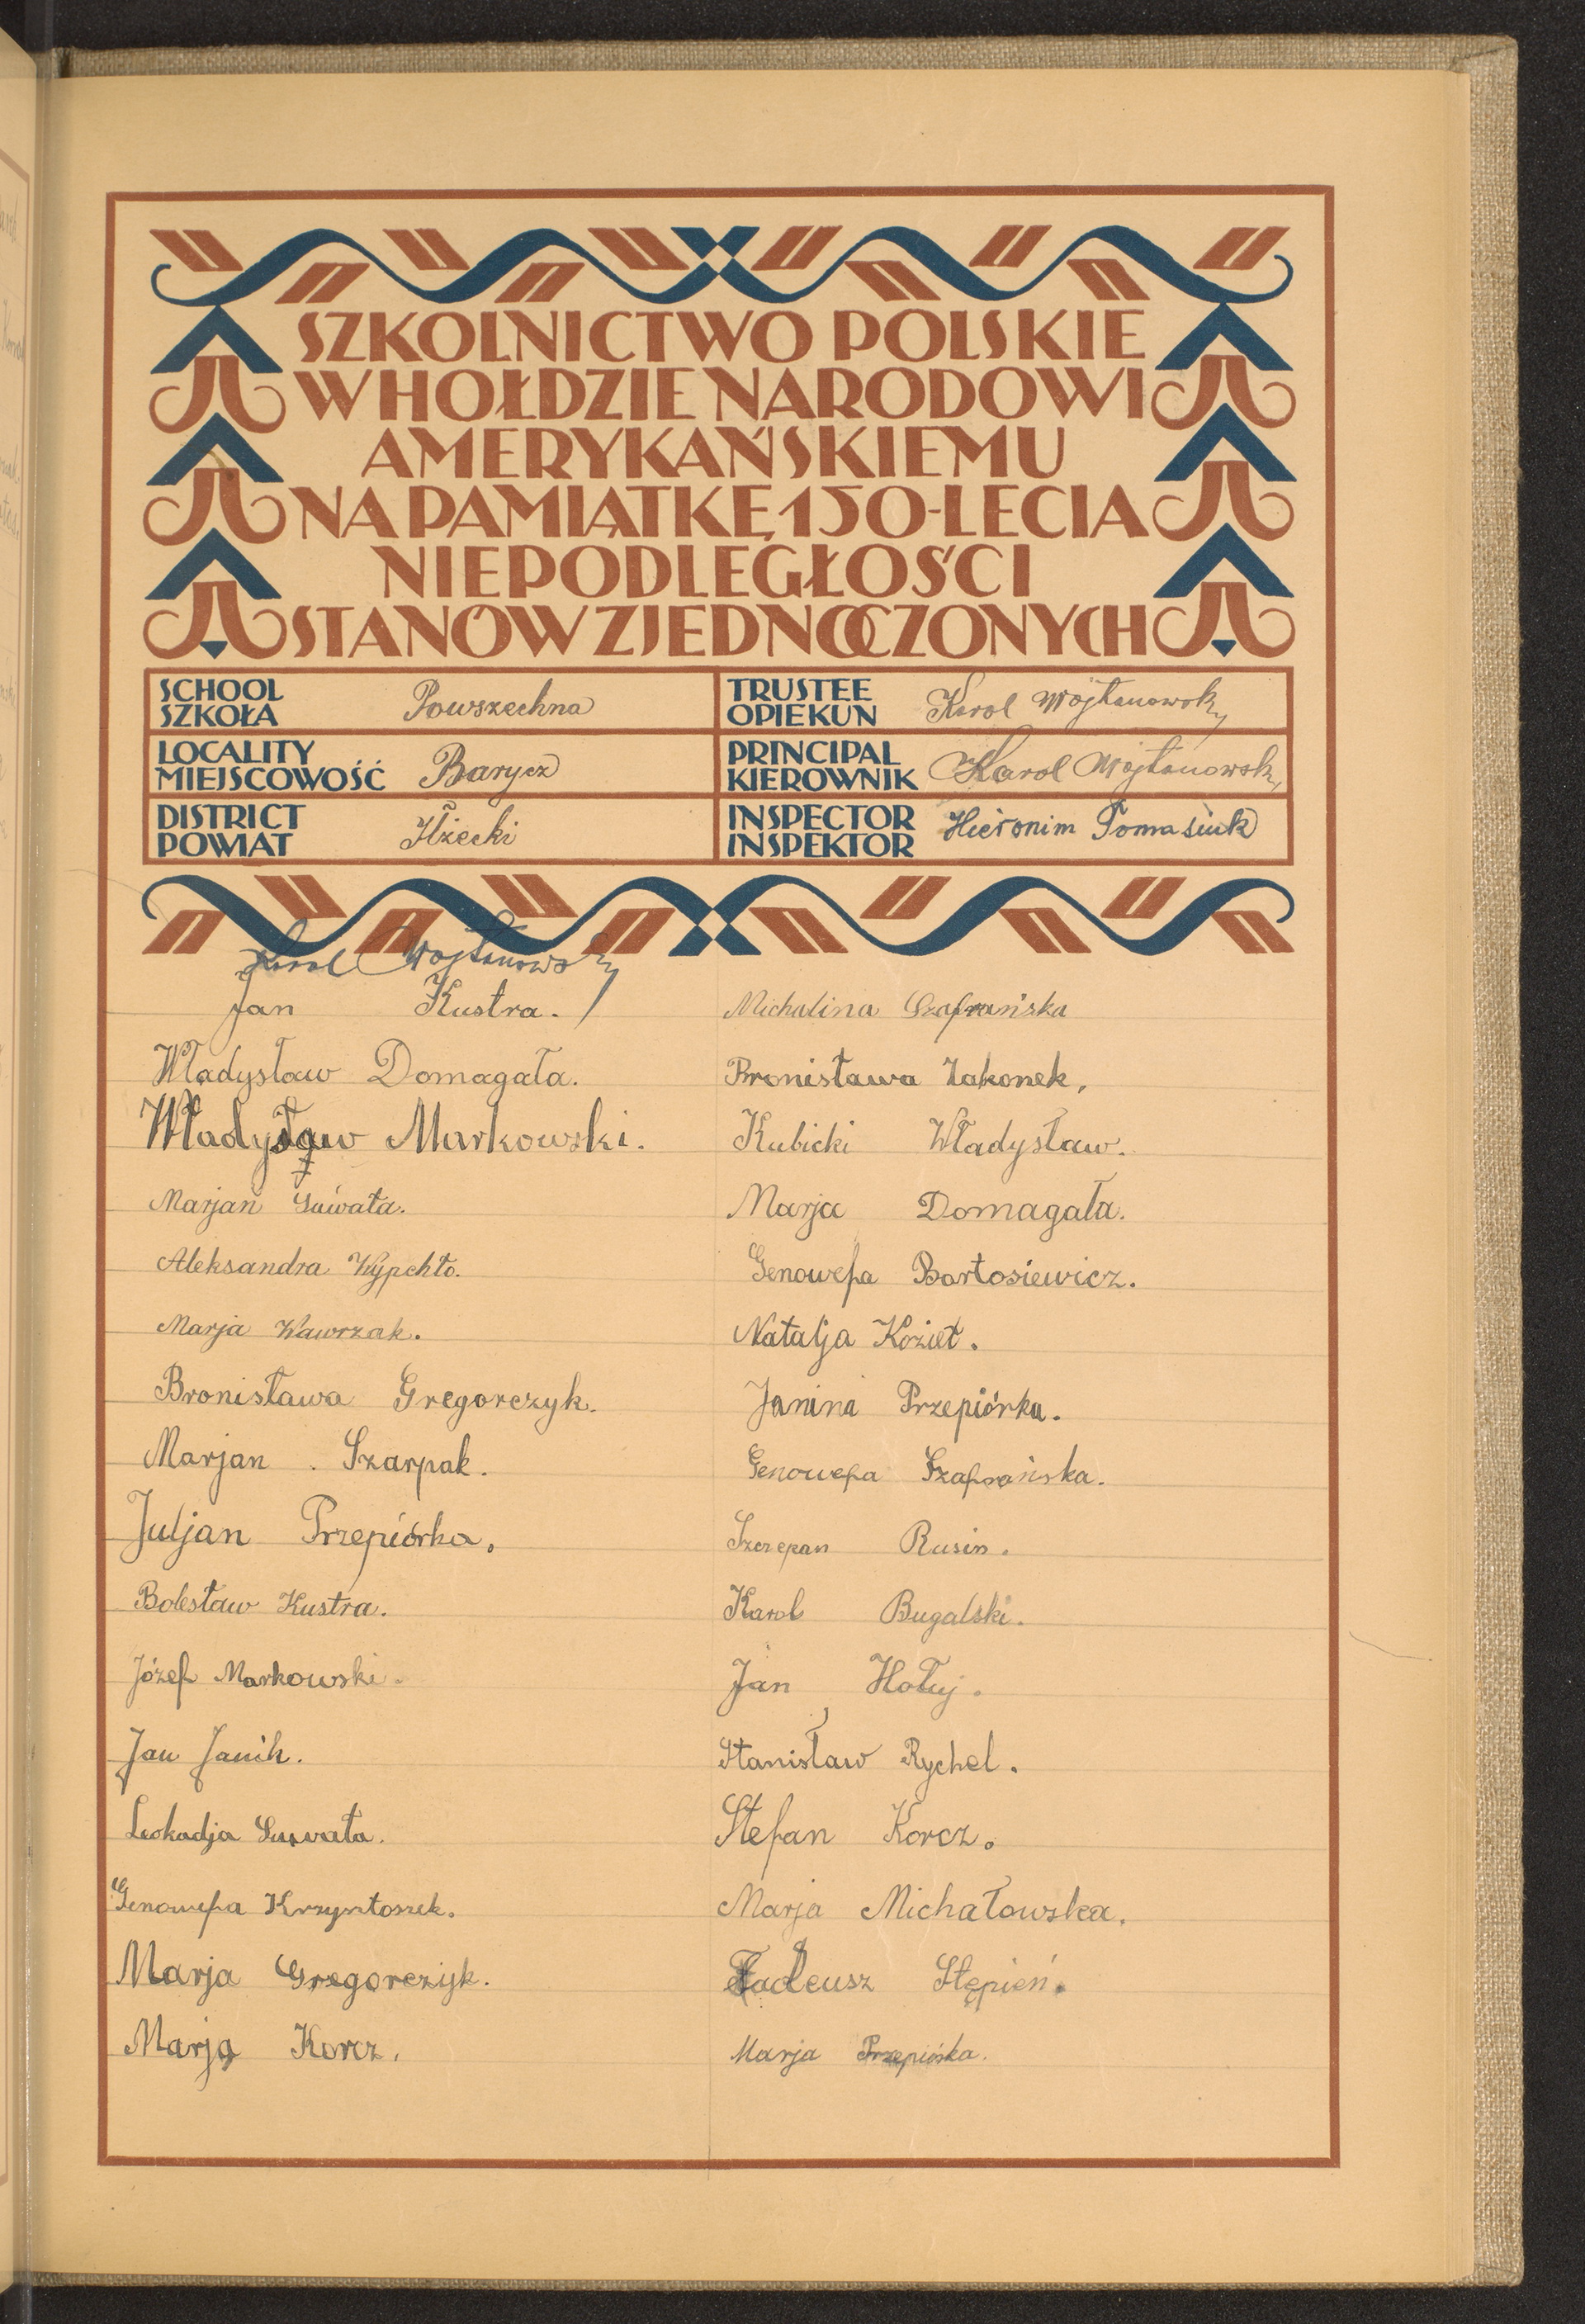 SZKOLNICTWO POLSKIE
W HOŁDZIE NARODOWI
AMERYKAŃSKIEMU
NA PAMIĄTKĘ 150-LECIA
NIEPODLEGŁOŚCI
STANÓW ZJEDNOCZONYCH
SCHOOL
SZKOŁA Powszechna
TRUSTEE
OPIEKUN Karol Wojtanowski
LOCALITY
MIEJSCOWOŚĆ Barycz
PRINCIPAL
KIEROWNIK Karol Wojtanowski
DISTRICT
POWIAT Iłżecki
INSPECTOR
INSPEKTOR Hieronim Tomasiuk
Karol Wojtanowski
Jan Kustra.
Władysław Domagała.
Władysław Markowski.
Marjan
Aleksandra Wypchło.
Marja Wawrzak.
Bronisława Gregorczyk.
Marjan . Szarpak.
Juljan Przepiórka.
Bolesław Kustra.
Józef Markowski.
Jan Janik.
Leokadja
Genowefa Krzysztoszek.
Marja Gregorczyk.
Marja Korcz.
Michalina Szafrańska
Bronisława Zakonek.
Kubicki Władysław.
Marja Domagała.
Genowefa Bartosiewicz.
Natalja Kozieł.
Janina Przepiórka.
Genowefa Szafrańska.
Szczepan Rusin.
Karol Bugalski.
Jan Hołuj.
Stanisław Rychel.
Stefan Korcz.
Marja Michałowska.
Tadeusz Stępień.
Marja Przepiórka.